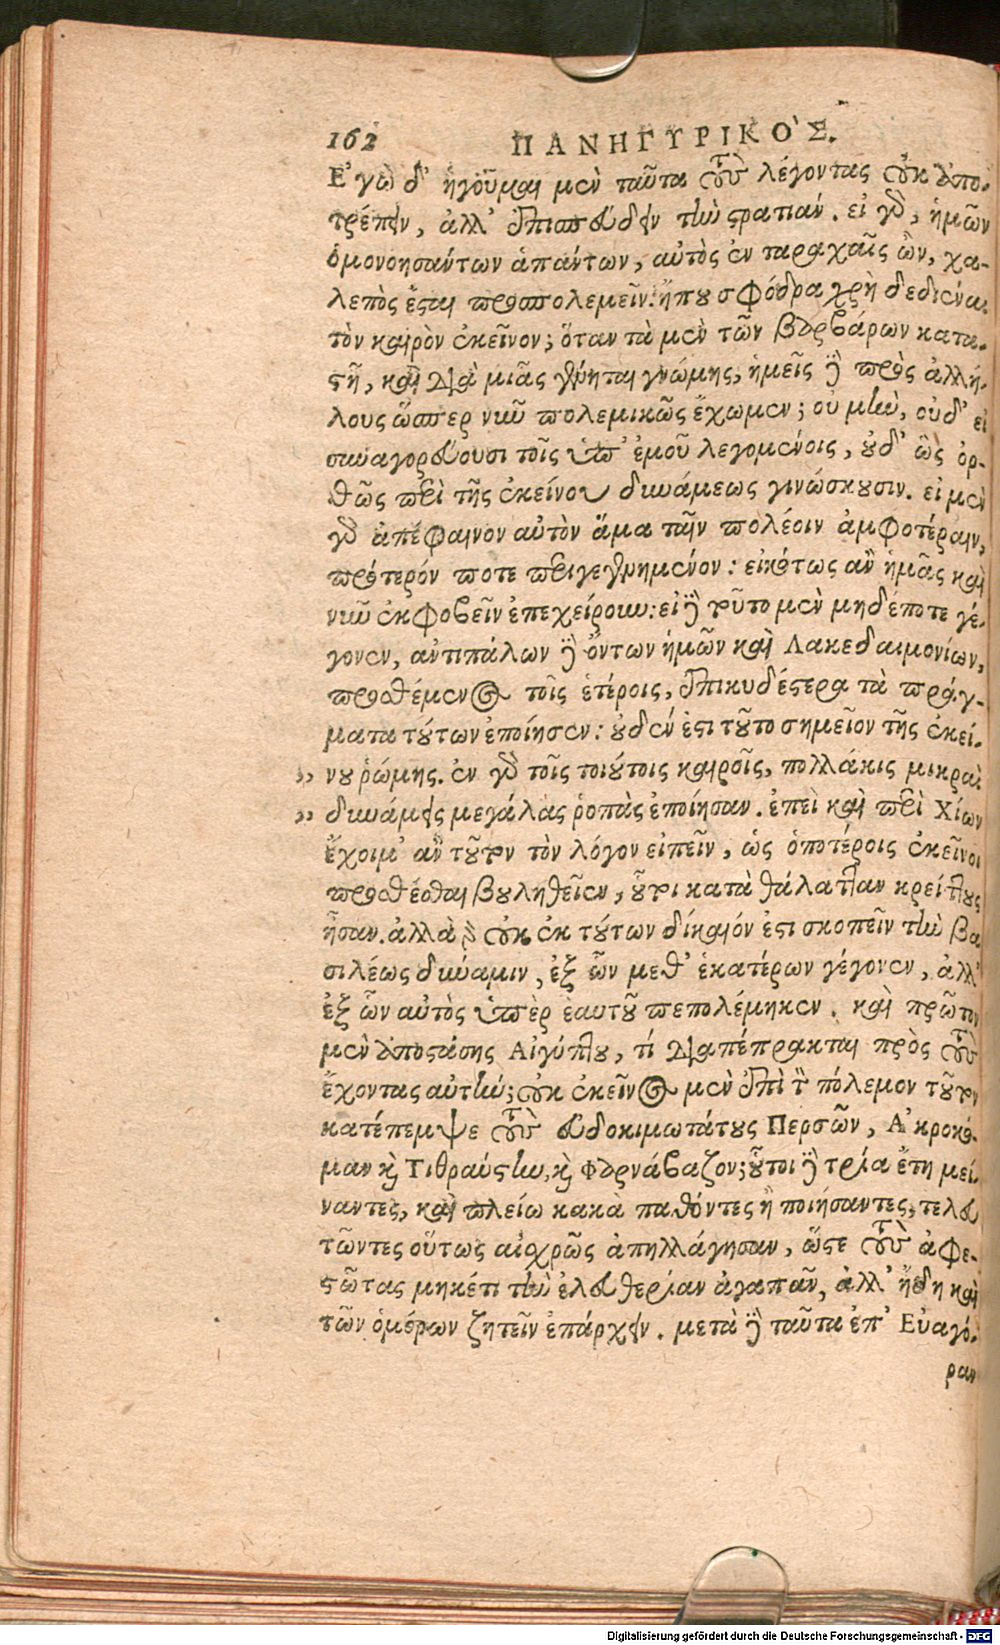 162 ΠΑΝΗΓΥΡΙΚΟ`Σ.
Ἐγὼ δ' ἡγοῦμαι μὲν ταῦτα τοὺς λέγοντας οὐκ ἀπο-
τρέπειν, ἀλλ' ἐπισπεύδειν τὴν στρατιάν. εἰ γὰρ, ἡμῶν
ὁμονοησάντων ἁπάντων, αὐτὸς ἐν ταραχαῖς ὢν, χα-
λεπὸς ἔσται προσπολεμεῖν: ἤπου σφόδρα χρὴ δεδιέναι
τὸν καιρὸν ἐκεῖνον; ὅταν τὰ μὲν τῶν βαρβάρων κατα-
στῇ, καὶ διὰ μιᾶς γένηται γνώμης, ἡμεῖς δὲ πρὸς ἀλλή-
λους ὥσπερ νῦν πολεμικῶς ἔχωμεν; οὐ μὴν, οὐδ' εἰ
συναγορεύουσι τοῖς ὑπ' ἐμοῦ λεγομένοις, οὐδ' ὣς ὀρ-
θῶς περὶ τῆς ἐκείνου δυνάμεως γινώσκουσιν. εἰ μὲν
γὰρ ἀπέφαινον αὐτὸν ἅμα ταῖν πολέοιν ἀμφοτέραιν,
πρότερόν ποτε περιγεγενημένον: εἰκότως ἂν ἡμᾶς καὶ
νῦν ἐκφοβεῖν ἐπεχείρουν: εἰ δὲ τοῦτο μὲν μηδέποτε γέ-
γονεν, ἀντιπάλων δὲ ὄντων ἡμῶν καὶ Λακεδαιμονίων,
προσθέμενος τοῖς ἑτέροις, ἐπικυδέστερα τὰ πράγ-
ματα τούτων ἐποίησεν: οὐδέν ἐστι τοῦτο σημεῖον τῆς ἐκεί-
„ νου ῥώμης. ἐν γὰρ τοῖς τοιούτοις καιροῖς, πολλάκις μικραὶ
„ δυνάμεις μεγάλας ῥοπὰς ἐποίησαν. ἐπεὶ καὶ περὶ Χίων
ἔχοιμ' ἂν τοῦτον τὸν λόγον εἰπεῖν, ὡς ὁποτέροις ἐκεῖνοι
προσθέσθαι βουληθεῖεν, οὗτοι κατὰ θάλατταν κρείττους
ἦσαν. ἀλλὰ γὰρ οὐκ ἐκ τούτων δίκαιόν ἐστι σκοπεῖν τὴν βα
σιλέως δύναμιν, ἐξ ὧν μεθ' ἑκατέρων γέγονεν, ἀλλ'
ἐξ ὧν αὐτὸς ὑπὲρ ἑαυτοῦ πεπολέμηκεν. καὶ πρῶτον
μὲν ἀποστάσης Αἰγύπτου, τί διαπέπρακται πρὸς τοὺς
ἔχοντας αὐτήν; οὐκ ἐκεῖνος μὲν ἐπὶ τὸν πόλεμον τοῦτον
κατέπεμψε τοὺς εὐδοκιμωτάτους Περσῶν, Ἀκροκό-
μαν καὶ Τιθραύστην, καὶ Φαρνάβαζον; οὗτοι δὲ τρία ἔτη μεί-
ναντες, καὶ πλείω κακὰ παθόντες ἢ ποιήσαντες, τελευ
τῶντες οὕτως αἰσχρῶς ἀπηλλάγησαν, ὥστε τοὺς ἀφε-
στῶτας μηκέτι τὴν ἐλευθερίαν ἀγαπᾶν, ἀλλ' ἤδη καὶ
τῶν ὁμόρων ζητεῖν ἐπάρχειν. μετὰ δὲ ταῦτα ἐπ' Εὐαγό-
ραν
Digitalisierung gefördert durch die Deutsche Forschungsgemeinschaft - DFG